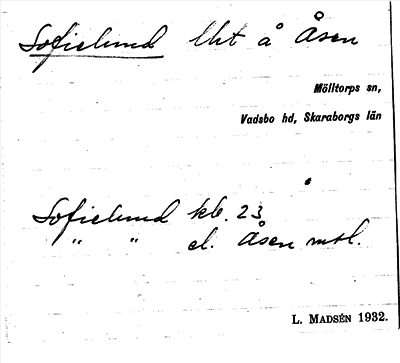 Sofielund lht å Åsen
Mölltorps sn,
Vadsbo hd, Skaraborgs län
Sofielund kb. 23
" " el. Åsen mtl.
L. MADSÉN 1932.